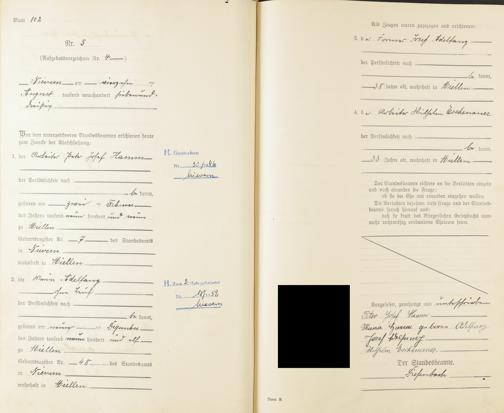 Blatt 102
Nr. 5
(Aufgebotsverzeichnis Nr. 4)
Nievern am
August tausend neunhundert siebenund-
dreißig
Vor dem unterzeichneten Standesbeamten erschienen heute
zum Zwecke der Eheschließung:
1. der Arbeiter Peter Josef Hamm
der Persönlichkeit nach
be kannt,
geboren am zwei Februar
des Jahres tausend neun hundert und neun
zu Miellen
Geburtsregister Nr. 7 des Standesamts
in Nievern
wohnhaft in Miellen
2. die Maria Adelfang
ohne Beruf
der Persönlichkeit nach
be kannt,
geboren am neun Dezember
des Jahres tausend neun hundert und elf
zu Miellen
Geburtsregister Nr. 48 des Standesamts
in Nievern
wohnhaft in Miellen
H.
Nr.
Nievern
H.
Nr.
Nievern
Als Zeugen waren zugezogen und erschienen:
3. der Former Josef Adelfang
der Persönlichkeit nach
be kannt,
38 Jahre alt, wohnhaft in Miellen
4. der Arbeiter Wilhelm
der Persönlichkeit nach
be kannt,
33 Jahre alt, wohnhaft in Miellen
Der Standesbeamte richtete an die Verlobten einzeln
und nach einander die Frage:
ob sie die Ehe mit einander eingehen wollen.
Die Verlobten bejahten diese Frage und der Standesbe-
amte sprach hierauf aus:
daß sie kraft des Bürgerlichen Gesetzbuchs nun-
mehr rechtmäßig verbundene Eheleute seien.
Vorgelesen, genehmigt und unterschrieben
Peter Josef Hamm
Maria Hamm geborene Adelfang
Josef Adelfang
Wilhelm
Der Standesbeamte.
Diefenbach